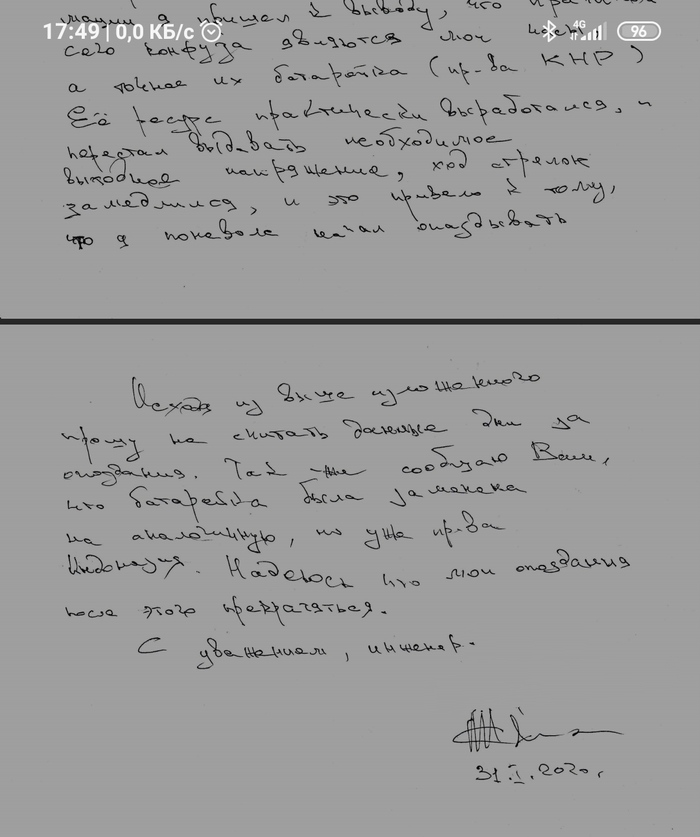 17:49 | 0,0 КБ/с 4G 96
я пришел к выводу, что
сего конфуза являются мои
а точнее их батарейка (пр-ва КНР)
Её ресурс практически выработался, и
перестал выдавать необходимое
выходное напряжение, ход стрелок
замедлился, и это привело к тому,
что я поневоле начал опаздывать
Исходя из выше изложенного
прошу не считать данные дни за
опоздания. Так же сообщаю Вам,
что батарейка была заменена
на аналогичную, но уже пр-ва
Индонезия. Надеюсь что мои опоздания
после этого прекратяться.
С уважением, инженер.
31.I.2020г